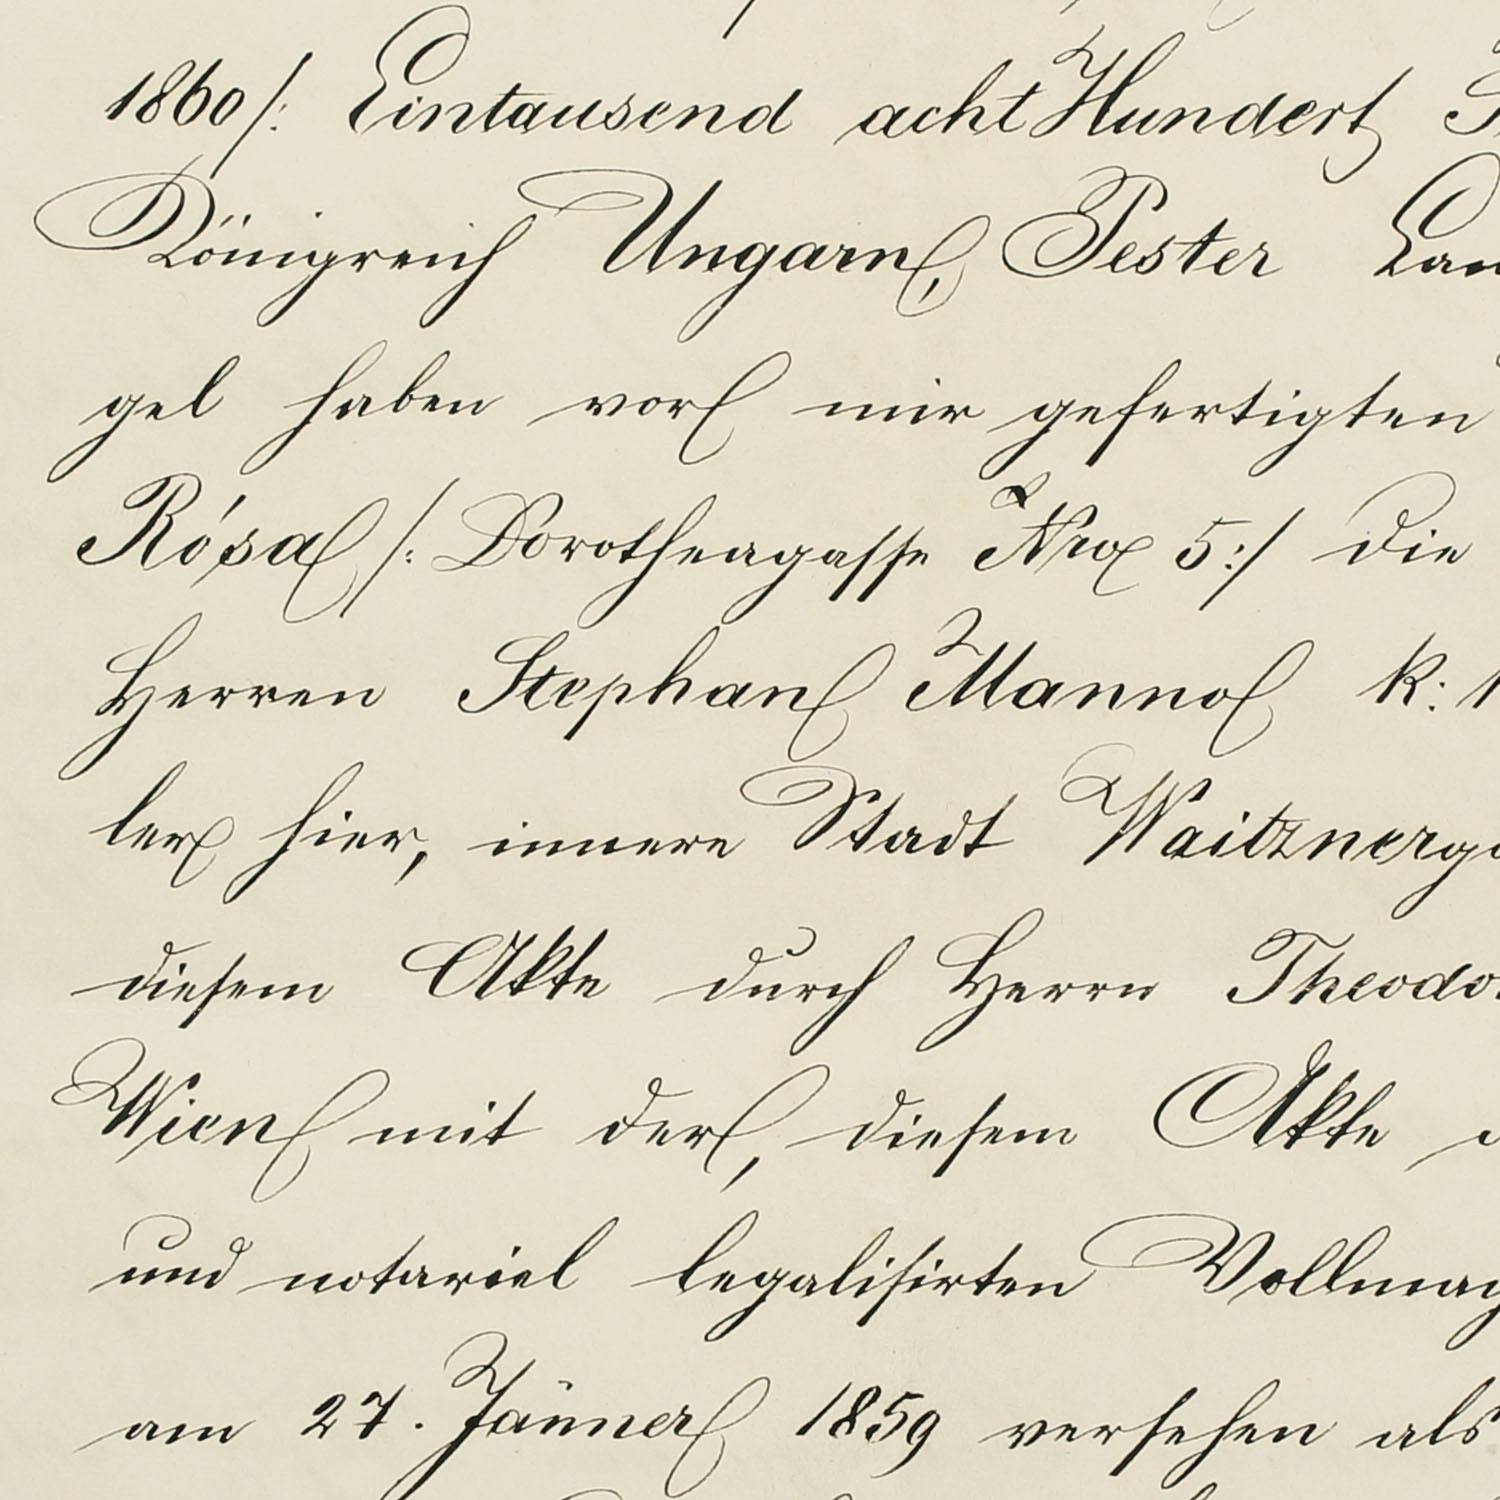 1860/: Eintausend acht Hundert
Königreich Ungarn, Pester
gel haben vor mir gefertigten
Rósa /: Dorotheagasse Nro 5:/ die
Herren Stephan Manno k:
ler hier, innere Stadt Waitznerga
diesem Akte durch Herrn Theodo
Wien mit der, diesem Akte
und notariel legalisirten Vollmac
am 27. Jänner 1859 versehen als